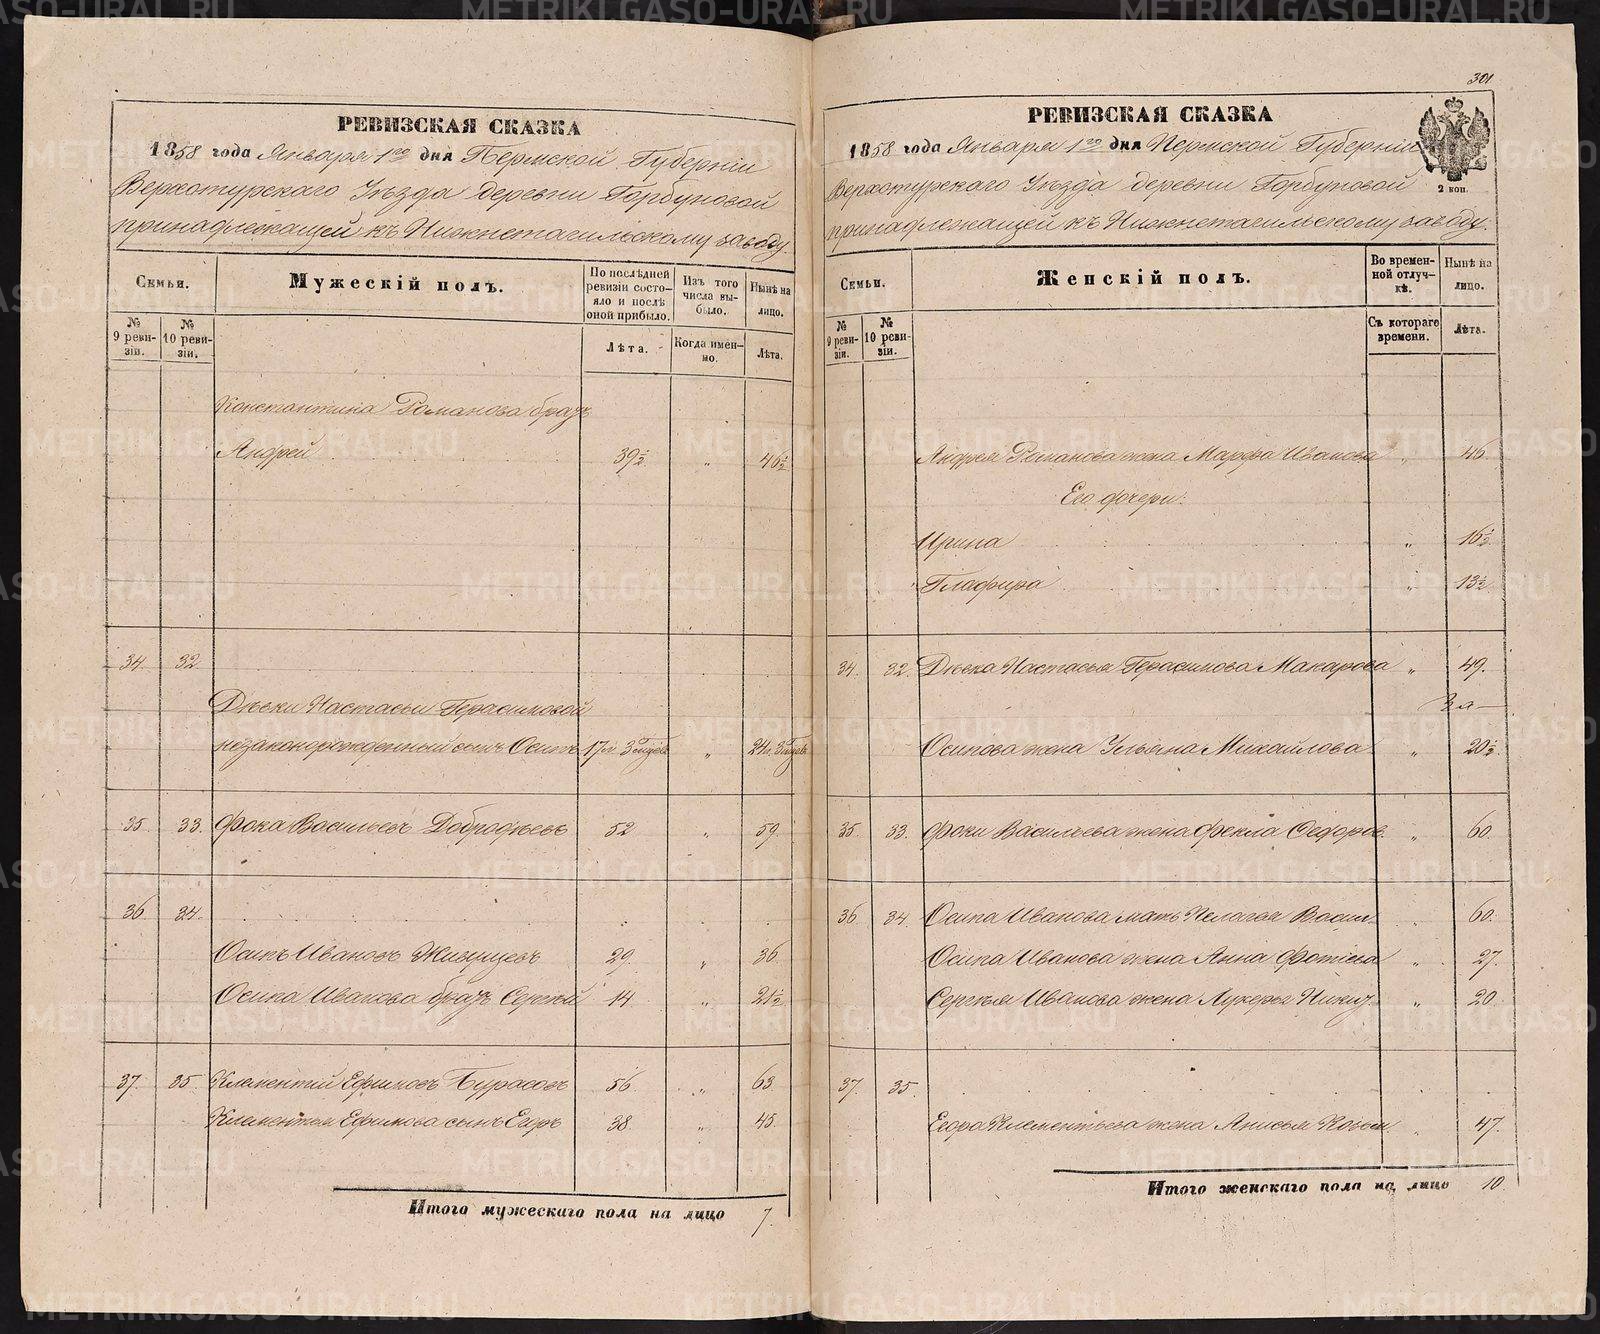 РЕВИЗСКАЯ СКАЗКА
1858 года Января 1го дня Пермской Губерніи
Верхотурскаго Уѣзда деревни Горбуновой
принадлежащей къ Нижнетагильскому заводу.
Семьи.
№ 9 ревизіи.
№ 10 ревизіи.
Мужескій полъ.
По послѣдней ревизіи состояло и послѣ оной прибыло.
Лѣта.
Изъ того числа выбыло.
Когда именно.
Нынѣ на лицо.
Лѣта.
Константина Романова братъ
Андрей 39½ „ 46½
34 32
Дѣвки Настасьи Герасимовой
незаконорожденный сынъ Осипъ 17 „ 24
35 33 Фока Васильевъ Добродѣевъ 52 „ 59
36 34
Осипъ Ивановъ 29 „ 36
Осипа Иванова братъ Сергѣй 14 „ 21½
37 35 Клементій Ефимовъ Бурасовъ 56 „ 63
Клементья Ефимова сынъ Егоръ 38 „ 45
Итого мужескаго пола на лицо 7.
301
РЕВИЗСКАЯ СКАЗКА
2 коп.
1858 года Января 1го дня Пермской Губерніи
Верхотурскаго Уѣзда деревни Горбуновой
принадлежащей къ Нижнетагильскому заводу.
Семьи.
№ 9 ревизіи.
№ 10 ревизіи.
Женскій полъ.
Во временной отлучкѣ.
Съ котораго времени.
Нынѣ на лицо.
Лѣта.
Андрея Романова жена Марфа Иванова „ 46
Его дочери:
Ирина „ 16½
Глафира „ 13½
34 32 Дѣвка Настасья Герасимова Макарова „ 49.
Осипова жена Ульяна Михайлова „ 20½
35 33 Фоки Васильева жена Фекла Федоров. „ 60
36 34 Осипа Иванова мать Пелагья Васил. 60
Осипа Иванова жена Анна Фотіева „ 27
Сергѣя Иванова жена Лукерья Никит. „ 20
37 35
Егора Клементьева жена Анисья 47
Итого женскаго пола на лицо 10.
METRIKI.GASO-URAL.RU